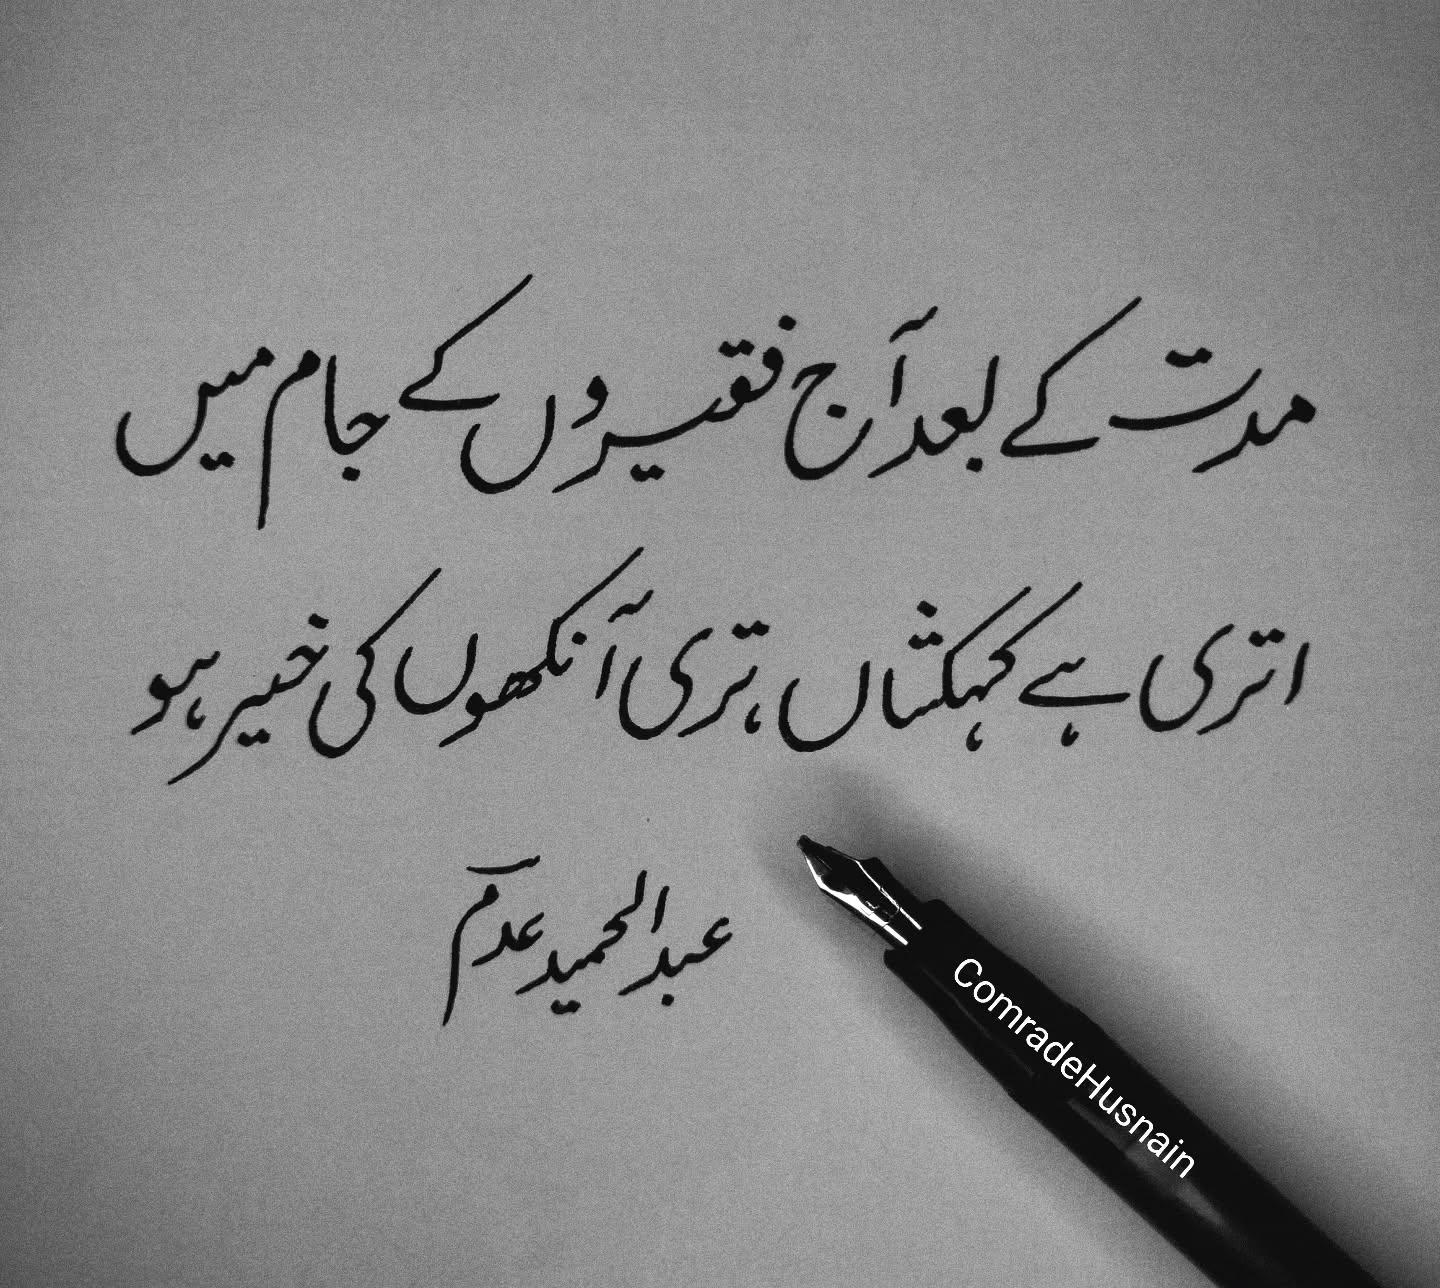 مدت کے بعد آج فقیروں کے جام میں
اتری ہے کہکشاں، تری آنکھوں کی خیر ہو
عبدالحمید عدم
ComradeHusnain